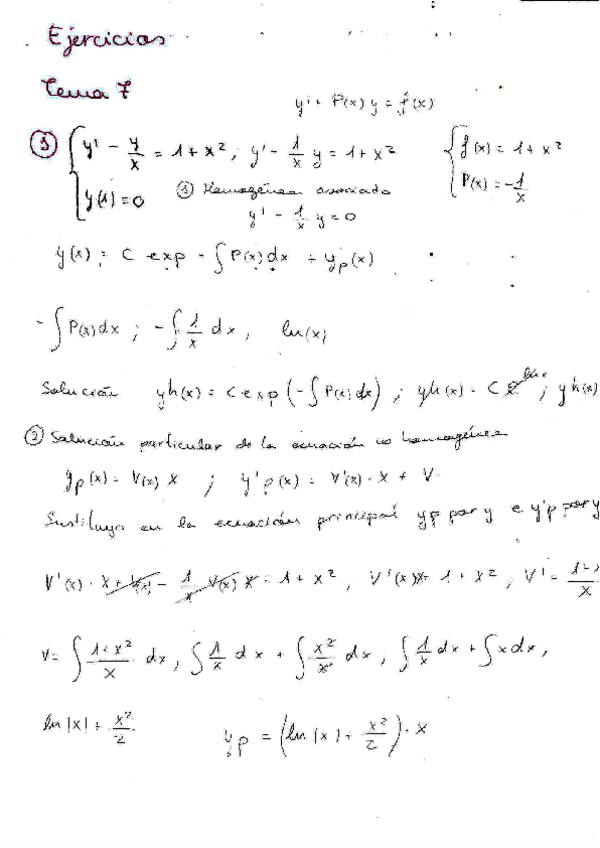 Ejercicios
Tema 7
y' + P(x) y = f(x)
① { y' - y/x = 1 + x² ; y' - 1/x y = 1 + x² { f(x) = 1 + x²
y(1) = 0 ① Homogénea asociada P(x) = -1/x
y' - 1/x y = 0
y(x) = C exp - ∫ P(x) dx + yp(x)
- ∫ P(x) dx ; - ∫ 1/x dx , ln(x)
Solución yh(x) = C exp (- ∫ P(x) dx) ; yh(x) = C e^ln x ; yh(x)
② Solución particular de la ecuación no homogénea
yp(x) = V(x) x ; y'p(x) = V'(x) · x + V
Sustituyo en la ecuación principal yp por y e y'p por y
V'(x) · x + V(x) - 1/x V(x) x = 1 + x² , V'(x) x = 1 + x² , V' = 1+
x
v = ∫ 1+x²/x dx , ∫ 1/x dx + ∫ x²/x dx ; ∫ 1/x dx + ∫ x dx ,
ln |x| + x²/2 yp = (ln |x| + x²/2) · x